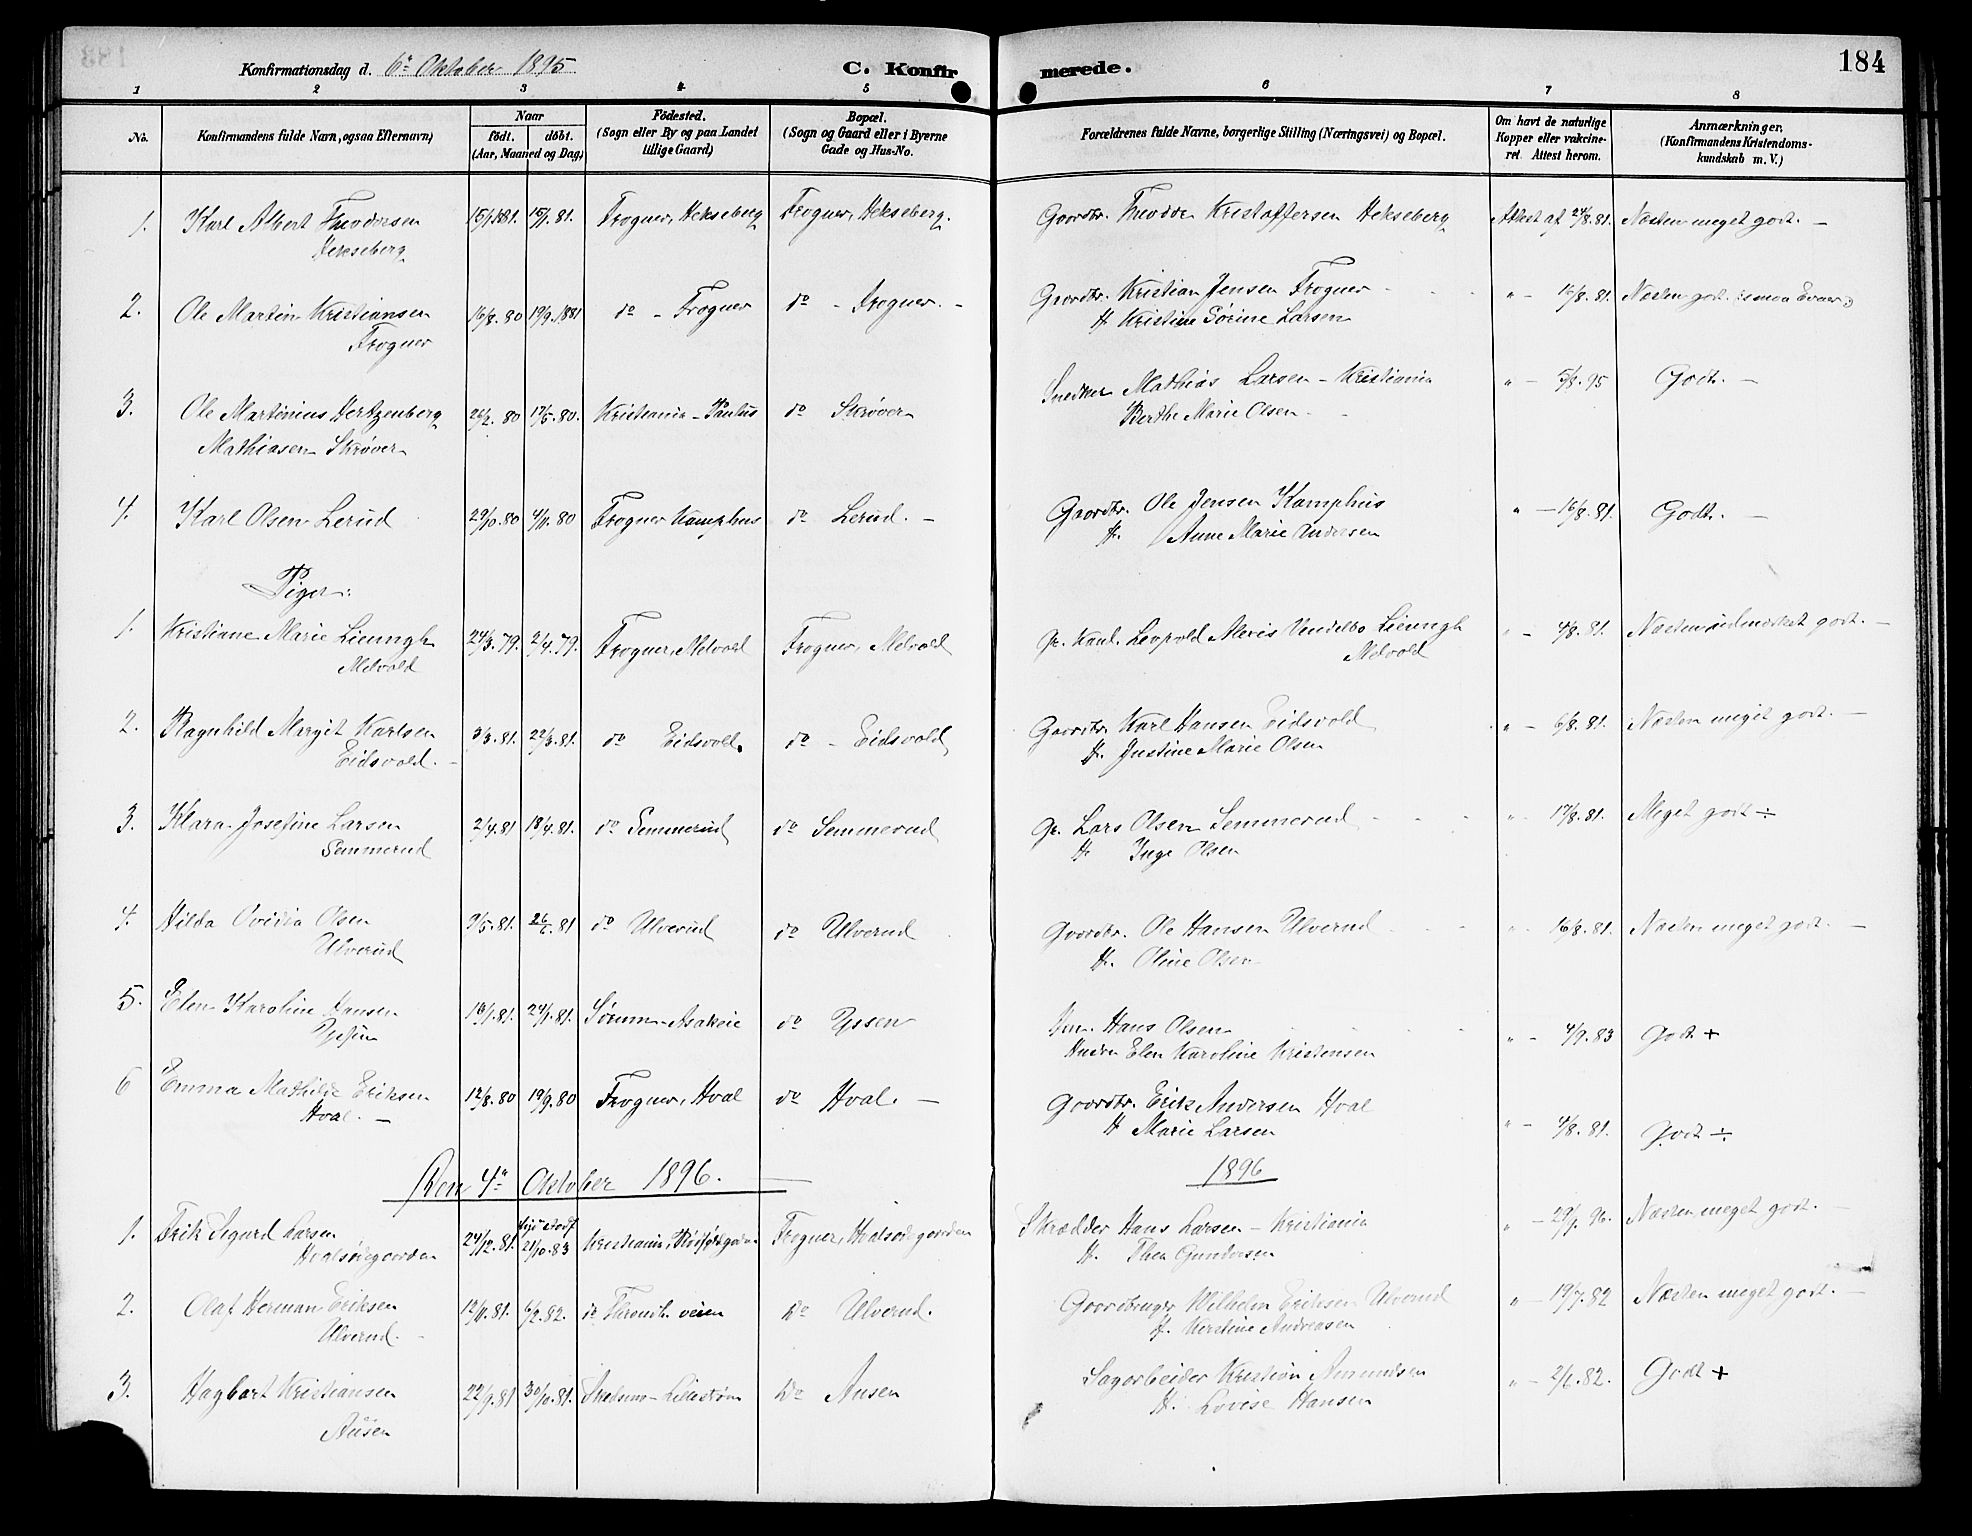 Konfirmationsdag d. 6te Oktober 1895 C. Konfirmerede. 184
1 2 3 4 5 6 7 8
No.
Konfirmandens fulde Navn, ogsaa Efternavn)
Naar
födt. döbt.
(Aar, Maaned og Dag)
Födested.
(Sogn eller By og paa Landet
tillige Gaard)
Bopæl.
(Sogn og Gaard eller i Byerne
Gade og Hus-No.
Forældrenes fulde Navne, borgerlige Stilling (Næringsvei) og Bopæl.
Om havt de naturlige
Kopper eller vakcine-
ret. Attest herom.
Anmærkninger,
(Konfirmandens Kristendoms-
kundskab m. V.)
1. Karl Albert Theodorsen 15/1 1881. 15/1. 81. Frogner, Hekseberg Frogner, Hekseberg. Gaardbr. Theodor Kristoffersen Hekseberg Attest af 24/8. 81. Næsten meget godt. –
Hekseberg
2. Ole Martin Kristiansen 16/8. 80 19/9. 1881 do – Frogner do – Frogner. – Gaardbr. Kristian Jensen Frogner " – 16/8. 81. Næsten godt.
Frogner H. Kristine Sörine Larsen
3. Ole Martinius Hertzenberg 26/2. 80 17/5. 80. Kristiania – Paulus do Skrøver Snedker Mathias Larsen – Kristiania " – 5/8. 95 Godt. –
Mathiasen Skrøver Berthe Marie Olsen
4. Karl Olsen Lerud 29/10. 80 4/11. 80 Frogner Kamphus do Lerud. – Gaardbr. Ole Jensen Kamphus " – 16/8. 81. Godt. –
H. Anne Marie Andersen
Piger:
1. Kristiane Marie Lieungh 24/3. 79. 2/4. 79. Frogner, Melvold Frogner, Melvold Gr. Kand. Leopold Alexis Vendelbo Lieungh " – 4/8. 81. Næsten udmærket godt. –
Melvold Melvold
2. Ragnhild Margit Karlsen 3/3. 81. 22/3. 81. do Eidsvold. do – Eidsvold Gaardbr. Karl Hansen Eidsvold " – 6/8. 81. Næsten meget godt. –
Eidsvold. – H. Justine Marie Olsen
3. Klara Josefine Larsen 2/4. 81 18/4. 81. do Semmerud do Semmerud Gr. Lars Olsen Semmerud " 17/8. 81. Meget godt ÷
Semmerud H. Inge Olsen
4. Hilda Ovidia Olsen 9/5. 81. 26/5. 81 do Ulverud do Ulverud Gaardbr. Ole Hansen Ulverud " 16/8. 81. Næsten meget godt. –
Ulverud H. Oline Olsen
5. Elen Karoline Hansen 16/1. 81. 24/1. 81. Sörum – Asakeie do Yssen Hans Olsen " – 4/9. 83 Godt +
Hustru Elen Karoline Kristensen
6 Emma Mathilde Eriksen 12/8. 80 19/9. 80 Frogner, Hval do Hval. – Gaardbr. Erik Andersen Hval " – 4/8. 81. Godt ÷
Hval. – H. Marie Larsen
Den 4de Oktober 1896. – 1896
1. Erik Sigurd Larsen 24/12. 81. 21/10. 83 Kristiania, Frogner, Hvalsödegaarden Skrædder Hans Larsen – Kristiania " – 29/9. 96. Næsten meget godt. –
Hvalsödegaarden H. Thea Gundersen
2. Olaf Herman Eriksen 12/11. 81. 6/2. 82. do Trondh. veien Do Ulverud. Gaardbruger Wilhelm Eriksen Ulverud " – 19/7. 82 Næsten meget godt. –
Ulverud. – H. Kerstine Andreasen
3. Hagbart Kristiansen 22/9. 81 30/10. 81. Skedsmo – Lillestrøm Do Ausen Sagarbeider Kristian Amundsen " – 2/6. 82. Godt +
Ausen H. Lovise Hansen